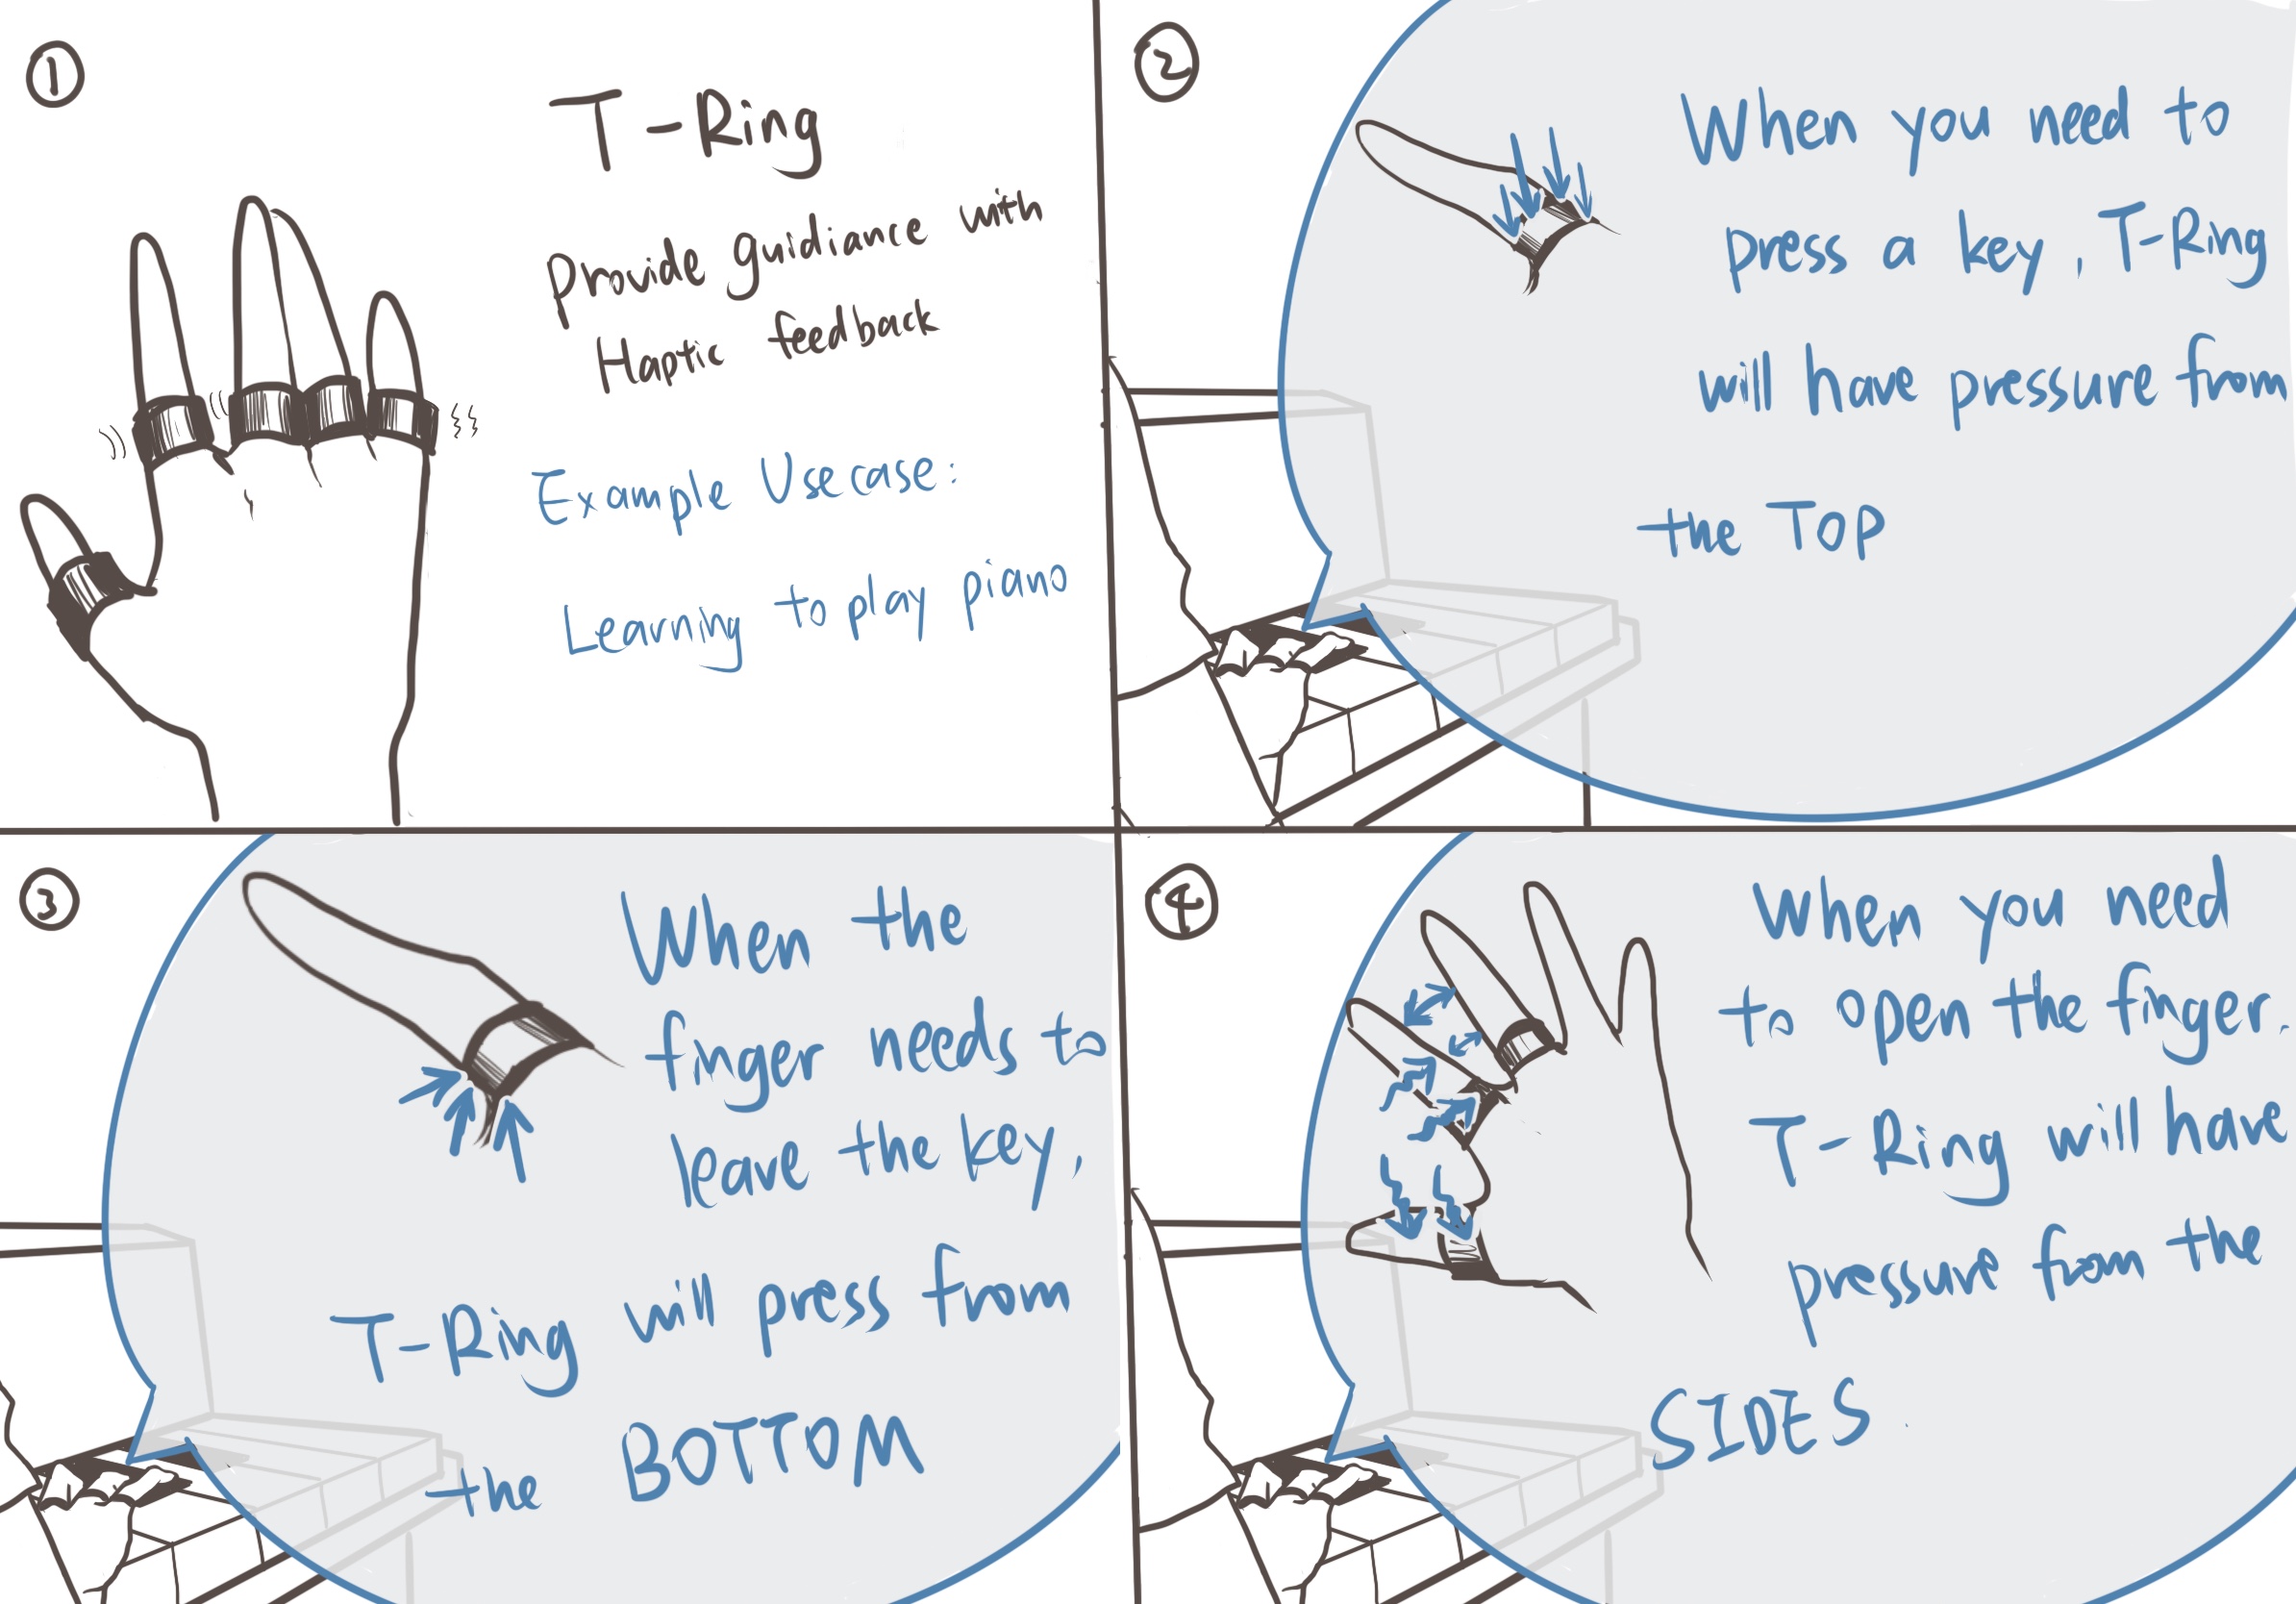 ①
T-Ring
provide guidiance with
Haptic feedback
Example Usecase:
Learning to play piano
②
When you need to
press a key, T-Ring
will have pressure from
the TOP
③
When the
finger needs to
leave the key,
T-Ring will press from
the BOTTOM
④
When you need
to open the finger.
T-Ring will have
pressure from the
SIDES.